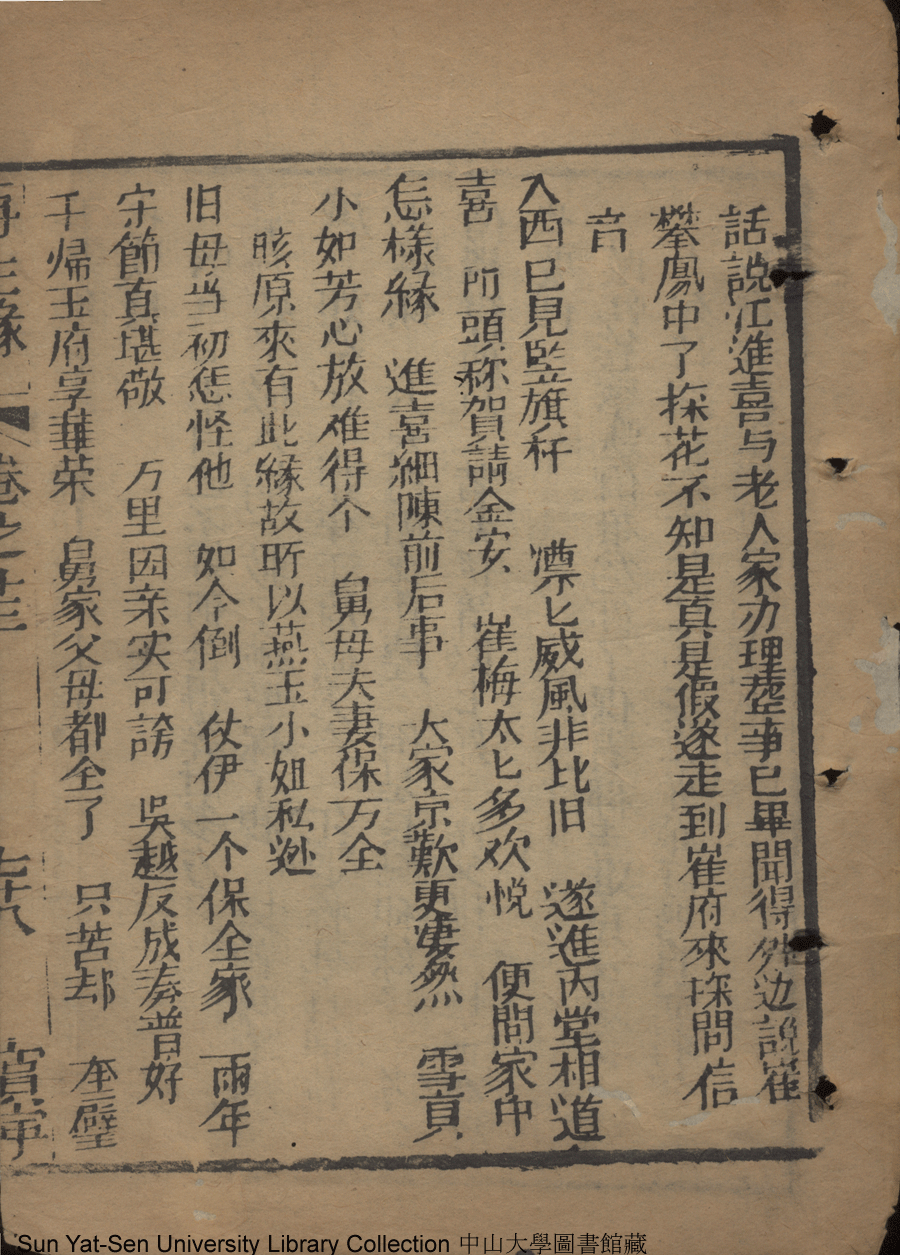 話説江進喜与老人家办理塟事已畢聞得外边説崔
攀鳳中了探花不知是真是假遂走到崔府來探問信
音
入西已見監旗杆 凜匕威風非比旧 遂進内堂相道
喜 叩頭称賀請金安 崔梅太匕多欢悦 便問家中
怎樣緣 進喜細陳前后事 大家京歎更凄然 雪貞
小如芳心放难得个 舅母夫妻保万全
晐原來有此緣故所以燕玉小姐私逊
旧母当初恁怪他 如今倒 仗伊一个保全家 雨年
守節真堪敬 万里因亲实可誇 吳越反成湊普好
千帰玉府享華荣 舅家父母都全了 只苦却 奎璧
再生緣 卷之十三 七十八 寶寧
Sun Yat-Sen University Library Collection 中山大學圖書館藏